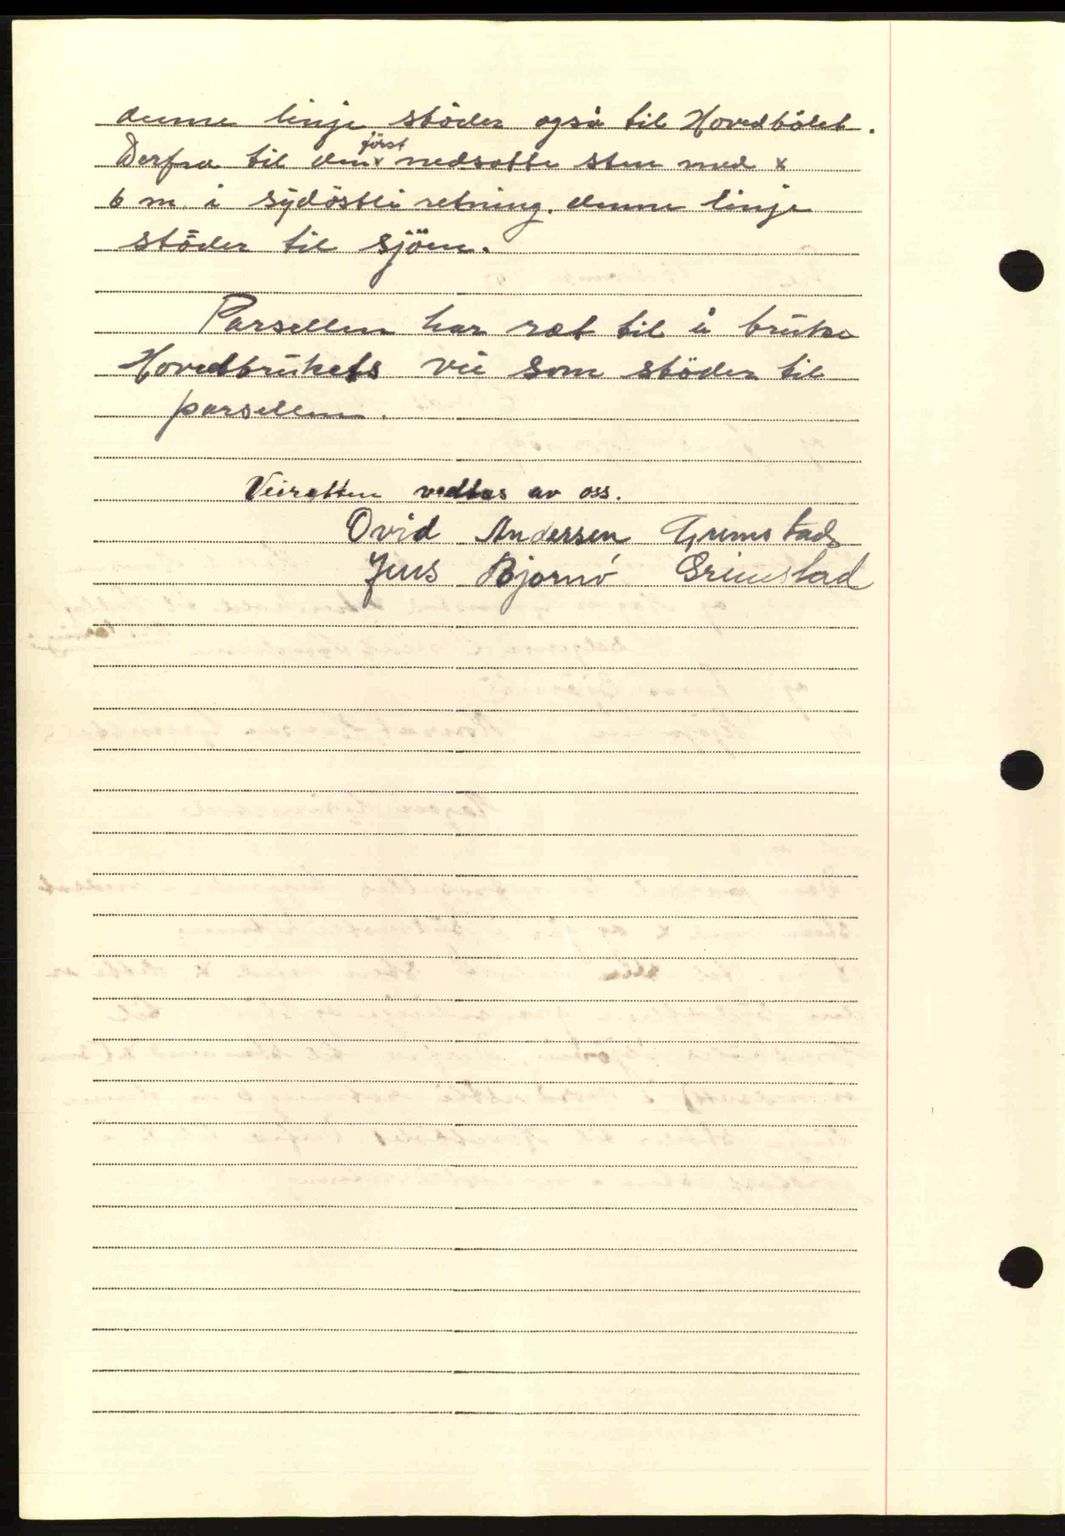 denne linje stöder også til Hovedbölet.
Derfra til den först nedsatte sten med x
6 m. i sydöstlig retning. denne linje
stöder til sjöen.
Parsellen har ret til å bruke
Hovedbrukets vei som stöder til
parsellen.
Veiretten vedtas av oss.
Ovid Andersen Grimstad
Jens Bjornö Grimstad